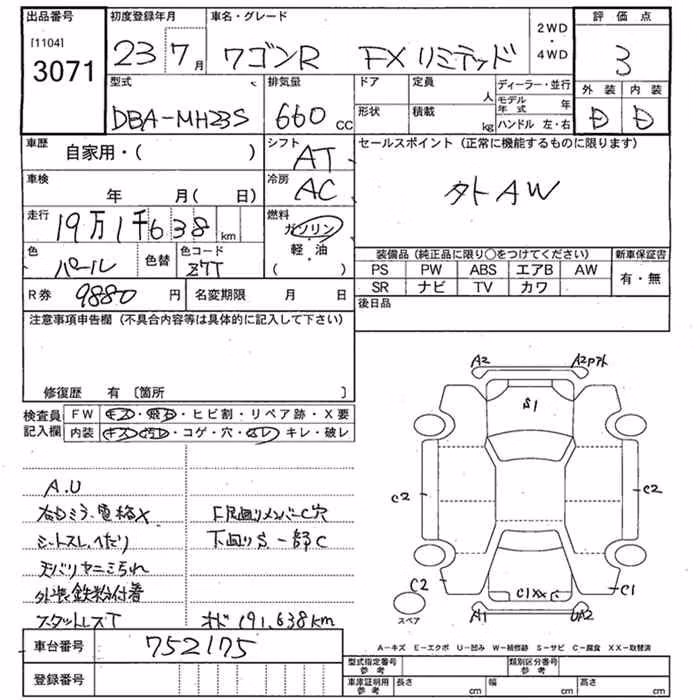 出品番号
[1104]
3071
初度登録年月
23 7月
車名・グレード
ワゴンR FXリミテッド
2WD・4WD
評価点
3
外装 内装
D D
型式
DBA-MH23S
排気量
660 cc
ドア
定員 人
形状
積載 kg
ディーラー・並行
モデル年式 年
ハンドル 左・右
車歴
自家用・( )
シフト
AT
セールスポイント (正常に機能するものに限ります)
外トAW
車検
年 月( 日)
冷房
AC
走行
19万1千638 km
燃料
ガソリン
軽・油
( )
色
パール
色替
色コード
Z7T
装備品 (純正品に限り○をつけてください)
新車保証書
PS PW ABS エアB AW
SR ナビ TV カワ
有・無
R券 9880 円
名変期限 月 日
後日品
注意事項申告欄 (不具合内容等は具体的に記入して下さい)
修復歴 有 [箇所 ]
検査員記入欄
FW キズ・飛石・ヒビ割・リペア跡・X要
内装 キズ・汚レ・コゲ・穴・スレ・キレ・破レ
A.U
右Dミラー電格X
シートスレ、へたり
天バリヤニミちれ
外装鉄粉付着
スタットレスT
F足回りメンバーC穴
下回りS、一部C
オド191,638km
A2
A2Pアト
S1
C2
C2
C2
C1
C1XX
A1
UA2
スペア
A-キズ E-エクボ U-凹み W-補修跡 S-サビ C-腐食 XX-取替済
車台番号 752175
登録番号
型式指定番号 参考
類別区分番号 参考
車庫証明用 参考
長さ cm
幅 cm
高さ cm